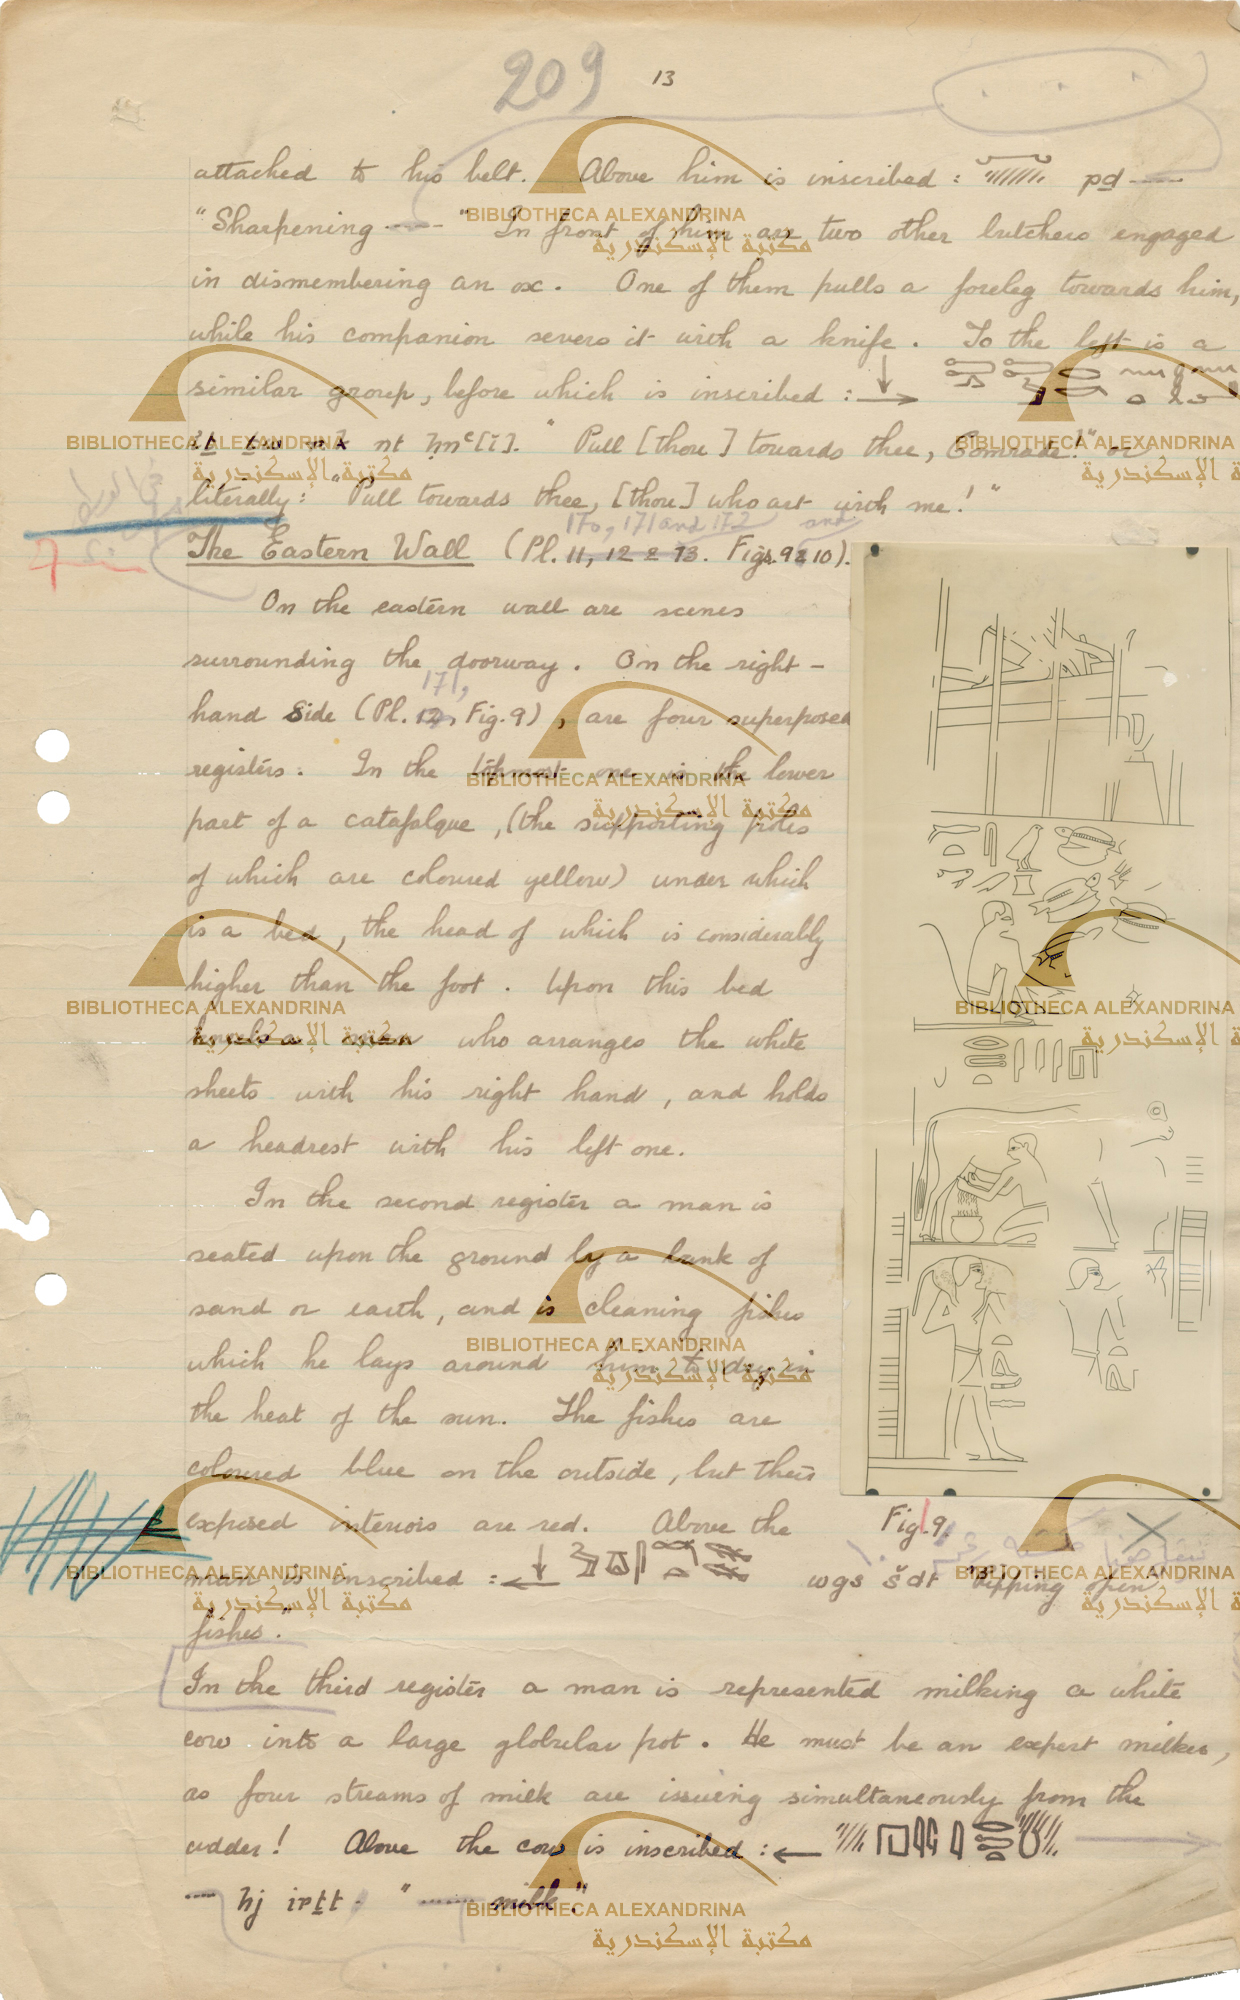 209
13
attached to his belt. Above him is inscribed : pḏ ——
"Sharpening ---- " In front of him are two other butchers engaged
in dismembering an ox. One of them pulls a foreleg towards him,
while his companion severs it with a knife. To the left is a
similar group, before which is inscribed :
nt ḥnꜥ[ỉ]. " Pull [thou] towards thee, Comrade!" or
literally: "Pull towards thee, [thou] who art with me!"
170, 171 and 172 and
The Eastern Wall (Pl. 11, 12 & 13. Figs. 9 & 10).
On the eastern wall are scenes
surrounding the doorway. On the right-
171,
hand side (Pl. 12, Fig. 9), are four superposed
registers. In the topmost one is the lower
part of a catafalque, (the supporting poles
of which are coloured yellow) under which
is a bed, the head of which is considerably
higher than the foot. Upon this bed
kneels a man who arranges the white
sheets with his right hand, and holds
a headrest with his left one.
In the second register a man is
seated upon the ground by a bank of
sand or earth, and is cleaning fishes
which he lays around him to dry in
the heat of the sun. The fishes are
coloured blue on the outside, but their
exposed interiors are red. Above the
Fig. 9.
man is inscribed : wgs šdt "Ripping open
fishes."
In the third register a man is represented milking a white
cow into a large globular pot. He must be an expert milker,
as four streams of milk are issuing simultaneously from the
udder! Above the cow is inscribed :
--- hj irṯt. " ---- milk."
BIBLIOTHECA ALEXANDRINA
مكتبة الإسكندرية